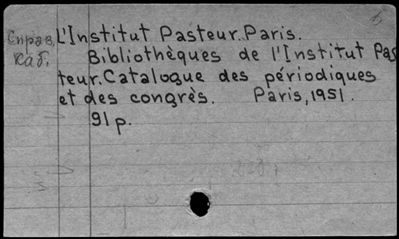 Справ. L'Institut Pasteur. Paris.
каб. Bibliothèques de l'Institut Pas
teur. Catalogue des périodiques
et des congrès. Paris, 1951.
91 p.